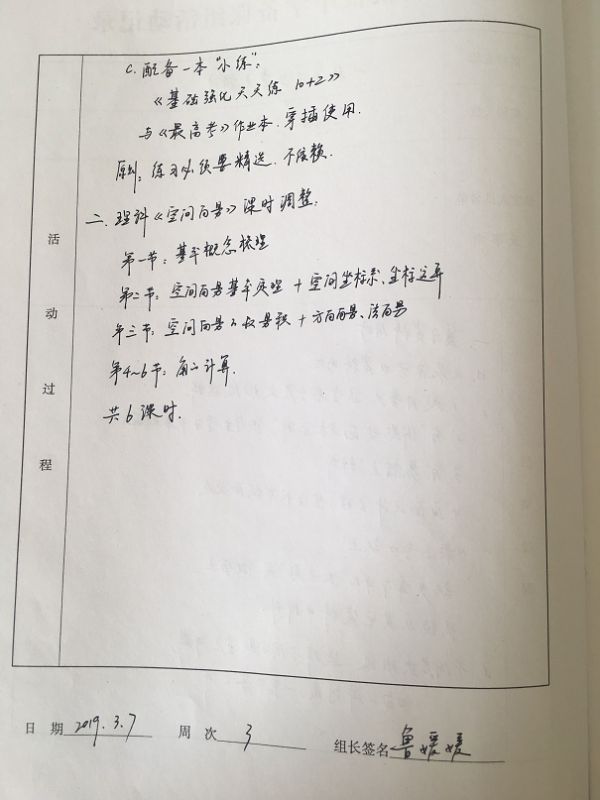 C. 配备一本“小练”:
《基础强化天天练 10+2》
与《最高考》作业本.穿插使用.
原则:练习必须要精选.不依赖.
二. 理科《空间向量》课时调整:
第一节:基本概念梳理
第二节:空间向量基本定理+空间坐标系、坐标运算
第三节:空间向量的数量积+方向向量、法向量
第4~6节:角的计算.
共6课时.
活动过程
日 期 2019.3.7 周 次 3 组长签名 鲁媛媛